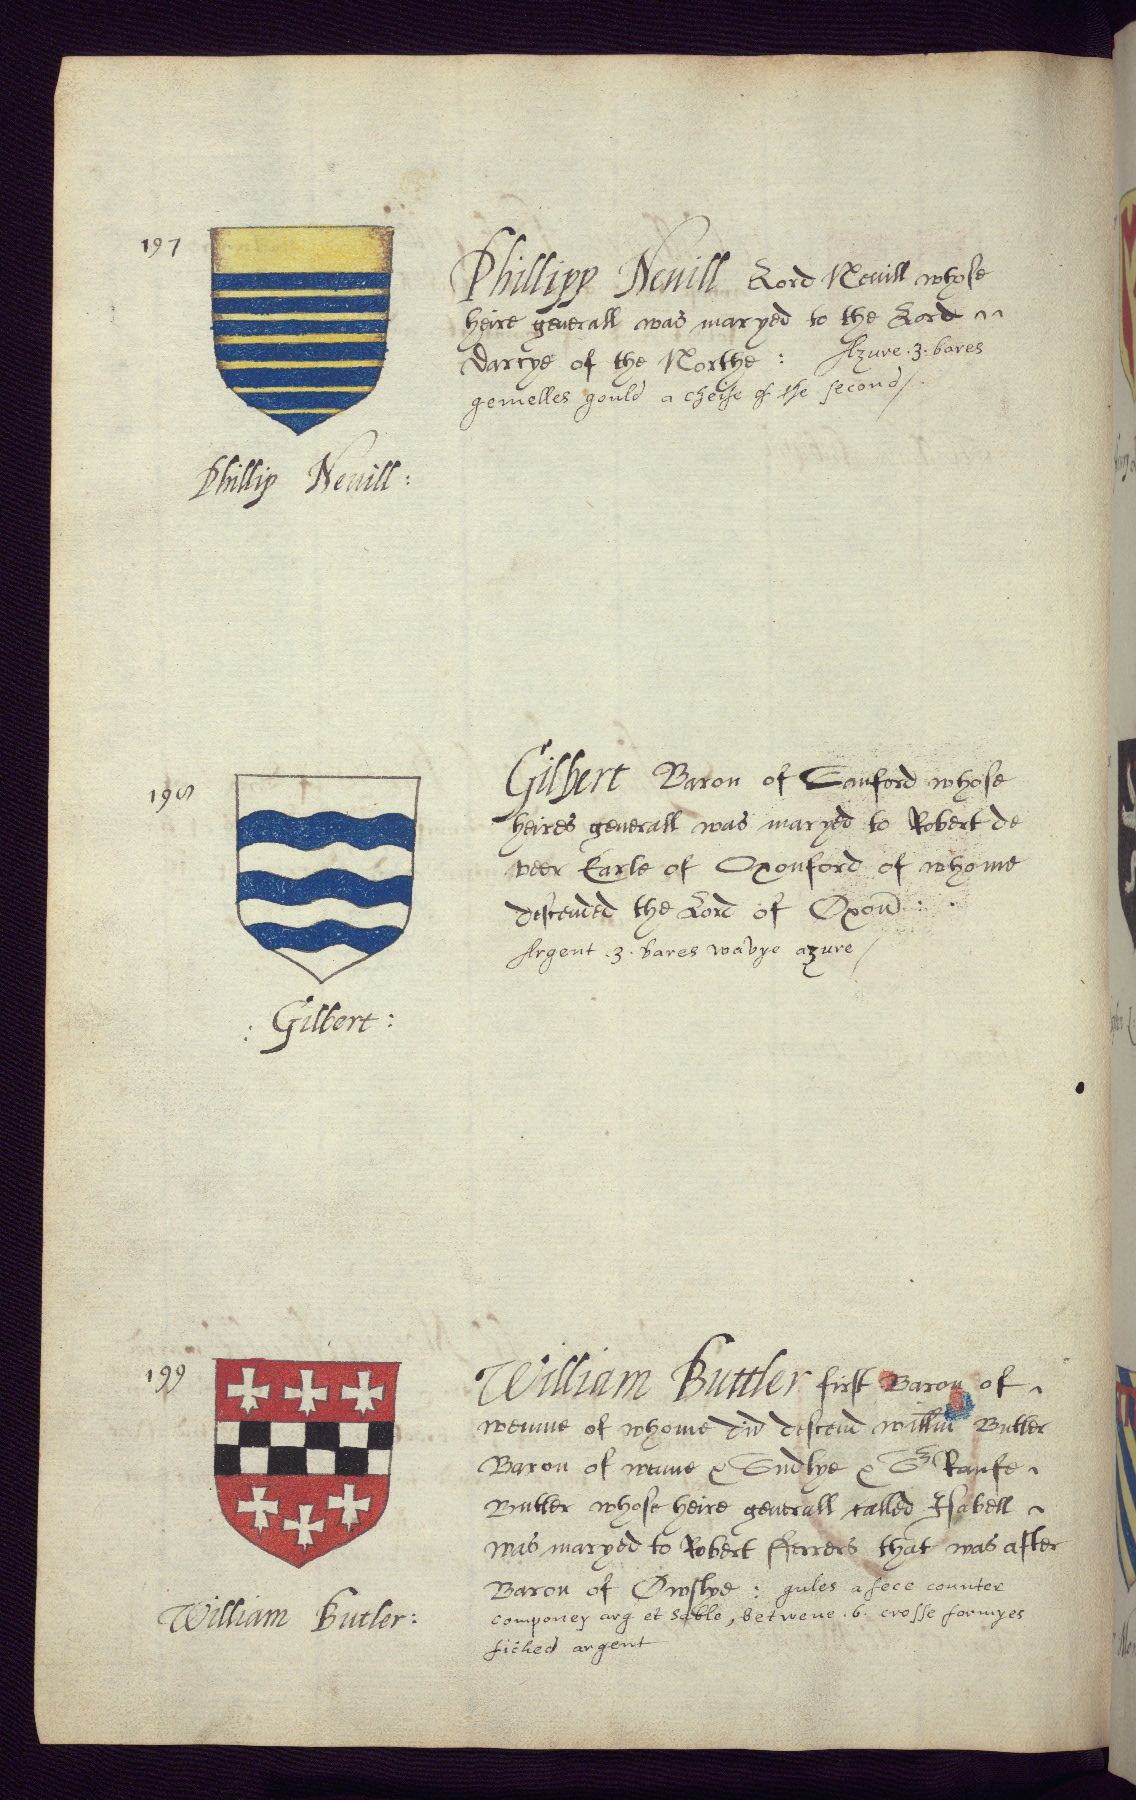 197
Phillipp Nevill Lord Nevill whose
heire generall was maryed to the Lord
Darcye of the Northe : Azure .3. bares
gemelles gould a cheife of the second/.
Phillip Nevill:
198
Gilbert Baron of Sanford whose
heires generall was maryed to Robert de
veer Earle of Oxonford of whome
descended the Lord of Oxon :
Argent .3. bares wavye azure /
: Gilbert :
199
William Buttler first Baron of
wemme of whome did descend Willm Butler
Baron of weme & Sudlye & Sr Raufe
Butler whose heire generall called Isabell
was maryed to Robert fferrers that was after
Baron of Owslye : gules a fece counter
componey arg et sable, betwene .6. crosse formyes
fiched argent
William Butler: